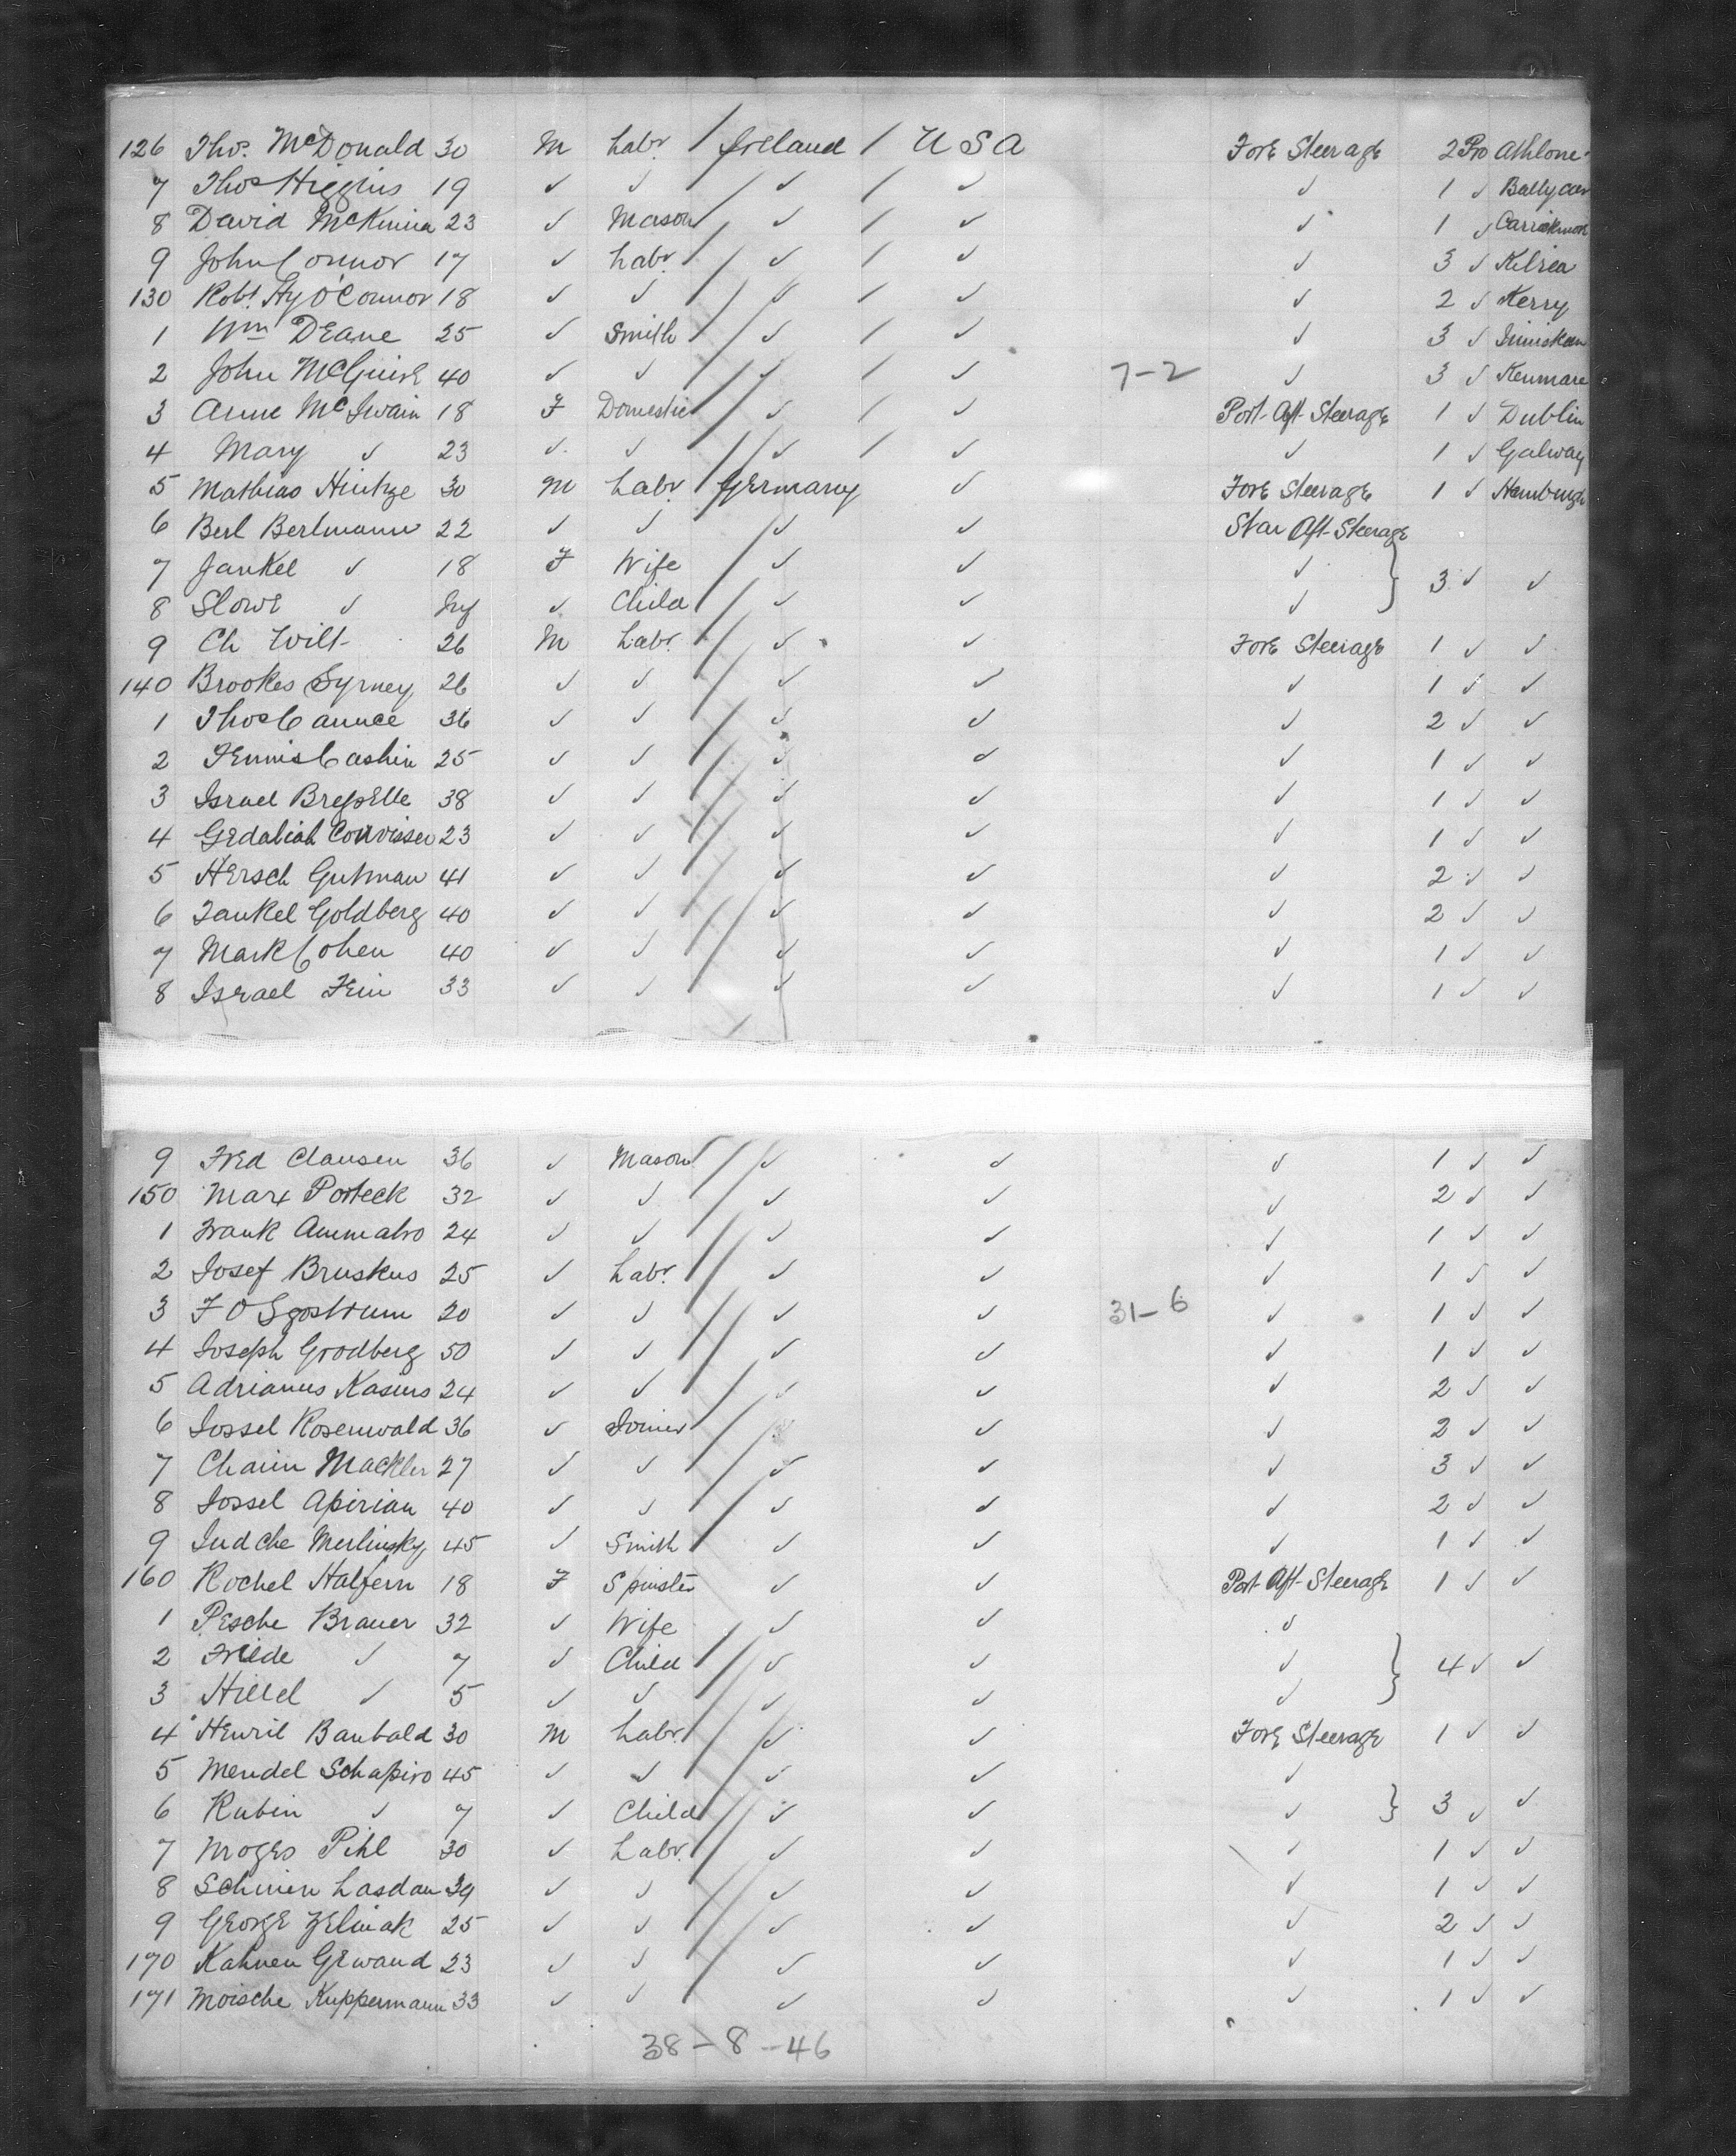 126 Thos. McDonald 30 M Labr. / Ireland / U S A Fore Steerage 2 Pro Athlone
7 Thos Higgins 19 ✓ ✓ / ✓ / ✓ ✓ 1 ✓
8 David McKinna 23 ✓ Mason / ✓ / ✓ ✓ 1 ✓
9 John Connor 17 ✓ Labr. / ✓ / ✓ ✓ 3 ✓ Kilrea
130 Robt. Hy O'Connor 18 ✓ ✓ / ✓ / ✓ ✓ 2 ✓ Kerry
1 Wm Deane 25 ✓ Smith / ✓ / ✓ ✓ 3 ✓
2 John McGuire 40 ✓ ✓ / ✓ / ✓ 7-2 ✓ 3 ✓ Kenmare
3 Anne McSwain 18 F Domestic / ✓ / ✓ Port Aft Steerage 1 ✓ Dublin
4 Mary ✓ 23 ✓ ✓ / ✓ / ✓ ✓ 1 ✓ Galway
5 Mathias Hintze 30 M Labr / Germany ✓ Fore Steerage 1 ✓ Hamburgh
6 Berl Berlmann 22 ✓ ✓ / ✓ ✓ Star Aft Steerage
7 Jankel ✓ 18 F Wife / ✓ ✓ ✓ } 3 ✓ ✓
8 Slowe ✓ ✓ Child / ✓ ✓ ✓
9 Ch Wilt 26 M Labr. / ✓ ✓ Fore Steerage 1 ✓ ✓
140 Brookes Syrney 26 ✓ ✓ / ✓ ✓ ✓ 1 ✓ ✓
1 Thos Cannce 36 ✓ ✓ / ✓ ✓ ✓ 2 ✓ ✓
2 Fennis Cashin 25 ✓ ✓ / ✓ ✓ ✓ 1 ✓ ✓
3 Israel 38 ✓ ✓ / ✓ ✓ ✓ 1 ✓ ✓
4 Gedaliah Convisser 23 ✓ ✓ / ✓ ✓ ✓ 1 ✓ ✓
5 Hersch Gutman 41 ✓ ✓ / ✓ ✓ ✓ 2 ✓ ✓
6 Jankel Goldberg 40 ✓ ✓ / ✓ ✓ ✓ 2 ✓ ✓
7 Mark Cohen 40 ✓ ✓ / ✓ ✓ ✓ 1 ✓ ✓
8 Israel Fein 33 ✓ ✓ ✓ ✓ ✓ 1 ✓ ✓
9 Fred Clausen 36 ✓ Mason / ✓ ✓ ✓ 1 ✓ ✓
150 Marx Porteck 32 ✓ ✓ / ✓ ✓ ✓ 2 ✓ ✓
1 Frank Ammatro 24 ✓ ✓ / ✓ ✓ ✓ 1 ✓ ✓
2 Josef Bruskus 25 ✓ Labr. / ✓ ✓ ✓ 1 ✓ ✓
3 F O 20 ✓ ✓ / ✓ ✓ 31-6 ✓ 1 ✓ ✓
4 Joseph Grodberg 50 ✓ ✓ / ✓ ✓ ✓ 1 ✓ ✓
5 Adrianus Kasius 24 ✓ ✓ / ✓ ✓ ✓ 2 ✓ ✓
6 Jossel Rosenwald 36 ✓ Joiner / ✓ ✓ 2 ✓ ✓
7 Chaim Mackler 27 ✓ ✓ / ✓ ✓ ✓ 3 ✓ ✓
8 Jossel Apirian 40 ✓ ✓ / ✓ ✓ ✓ 2 ✓ ✓
9 Judche Merlinsky 45 ✓ Smith / ✓ ✓ ✓ 1 ✓ ✓
160 Rochel Halfern 18 F Spinster ✓ ✓ Port Aft Steerage 1 ✓ ✓
1 Pesche Brauer 32 ✓ Wife ✓ ✓ ✓
2 Friede ✓ 7 ✓ Child / ✓ ✓ ✓ } 4 ✓ ✓
3 Hillel ✓ 5 ✓ ✓ / ✓ ✓ ✓
4 Henril Banbald 30 M Labr / ✓ ✓ Fore Steerage 1 ✓ ✓
5 Mendel Schapiro 45 ✓ ✓ / ✓ ✓ ✓
6 Rubin ✓ 7 ✓ Child / ✓ ✓ ✓ } 3 ✓ ✓
7 Moges Pihl 30 ✓ Labr. / ✓ ✓ ✓ 1 ✓ ✓
8 Schmen Lasdan 39 ✓ ✓ / ✓ ✓ ✓ 1 ✓ ✓
9 George Zelinak 25 ✓ ✓ / ✓ ✓ ✓ 2 ✓ ✓
170 Kahnen Gewand 23 ✓ ✓ / ✓ ✓ ✓ 1 ✓ ✓
171 Moische Kuppermann 33 ✓ ✓ ✓ ✓ ✓ 1 ✓ ✓
38-8-46